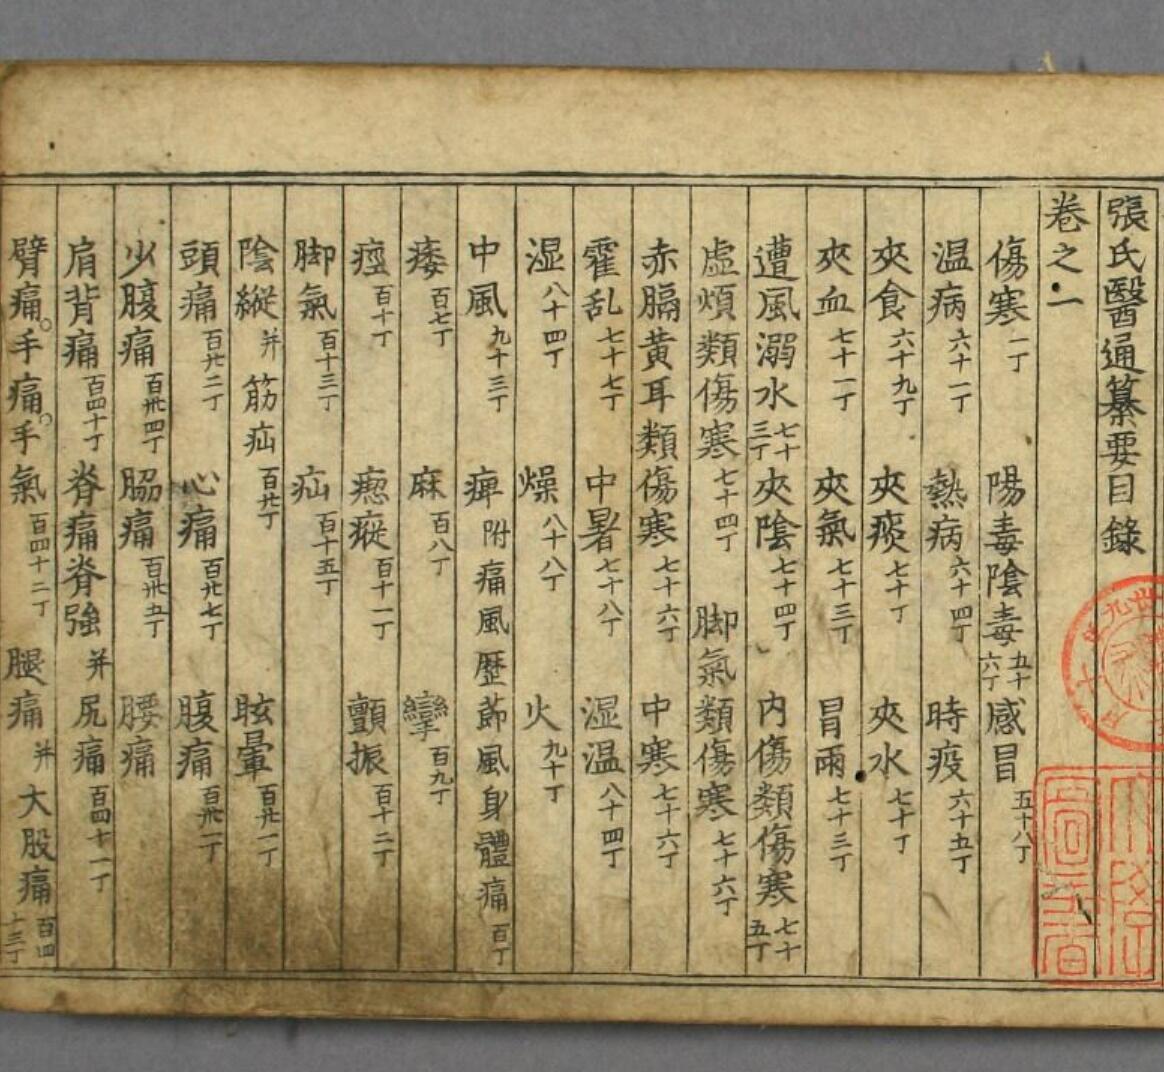 張氏醫通纂要目錄
卷之一
傷寒一丁 陽毒陰毒五十六丁 感冒五十八丁
温病六十一丁 熱病六十四丁 時疫六十五丁
夾食六十九丁 夾痰七十丁 夾水七十丁
夾血七十一丁 夾氣七十三丁 冒雨七十三丁
遭風溺水七十三丁 夾陰七十四丁 内傷類傷寒七十五丁
虛煩類傷寒七十四丁 脚氣類傷寒七十六丁
赤膈黃耳類傷寒七十六丁 中寒七十六丁
霍乱七十七丁 中暑七十八丁 湿温八十四丁
湿八十四丁 燥八十八丁 火九十丁
中風九十三丁 痺附痛風歷節風身體痛百丁
痿百七丁 麻百八丁 攣百九丁
痙百十丁 瘛瘲百十一丁 顫振百十二丁
脚氣百十三丁 疝百十五丁
陰縱并筋疝百廿丁 眩暈百廿一丁
頭痛百廿二丁 心痛百廿七丁 腹痛百卅一丁
少腹痛百卅四丁 脇痛百卅五丁 腰痛
肩背痛百四十丁 脊痛脊強并尻痛百四十一丁
臂痛。手痛。手氣百四十二丁 腿痛并大股痛百四十三丁